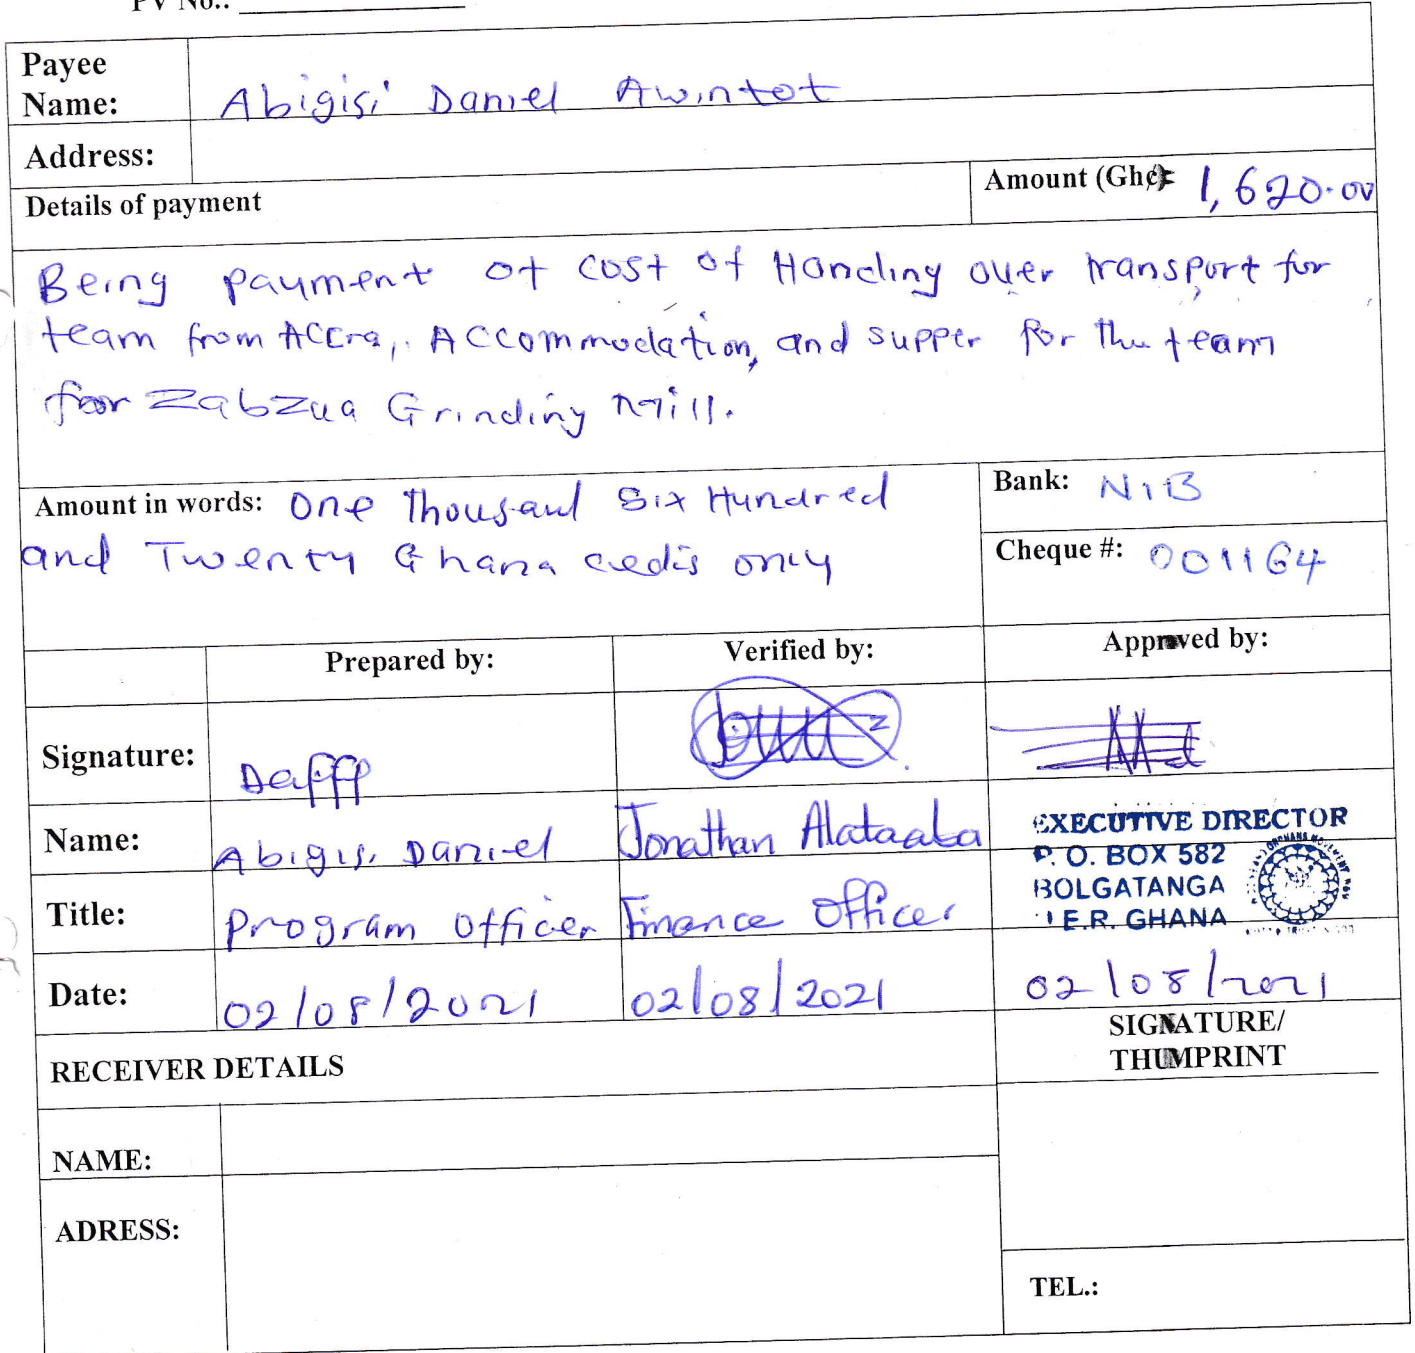 PV No.:
Payee
Name: Abigisi Daniel Awintot
Address:
Details of payment
Amount (Gh¢): 1,620.00
Being payment of cost of Handing over transport for
team from Accra, Accommodation, and supper for the team
for Zabzua Grinding Mill.
Amount in words: One Thousand Six Hundred
and Twenty Ghana cedis only
Bank: NIB
Cheque #: 001164
Prepared by: Verified by: Approved by:
Signature:
Name: Abigisi Daniel Jonathan Alataaba
EXECUTIVE DIRECTOR
P. O. BOX 582
BOLGATANGA
U.E.R. GHANA
Title: Program Officer Finance Officer
Date: 02/08/2021 02/08/2021 02/08/2021
RECEIVER DETAILS
SIGNATURE/
THUMPRINT
NAME:
ADRESS:
TEL.: